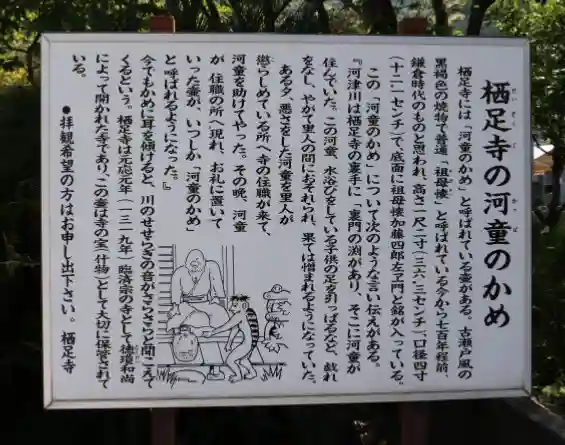 栖足寺の河童のかめ
せいそくじ
かっぱ
栖足寺には「河童のかめ」と呼ばれている壺がある。古瀬戸風の
黒褐色の焼物で普通「祖母懐」と呼ばれている今から七百年程前、
鎌倉時代のものと思われ、高さ一尺二寸(三六.三センチ)口径四寸
(十二.一センチ)で、底面に祖母懐加藤四郎左ヱ門と銘が入っている。
この「河童のかめ」について次のような言い伝えがある。
『河津川は栖足寺の裏手に「裏門の渕」があり、そこに河童が
住んでいた。この河童、水浴びをしている子供の足を引っぱるなど、戯れ
をなし、やがて里人の間におそれられ、果ては憎まれるようになっていた。
ある夕、悪さをした河童を里人が
懲らしめている所へ寺の住職が来て、
河童を助けてやった。その晩、河童
が住職の所へ現れ、お礼に置いて
いった壺が、いつしか「河童のかめ」
と呼ばれるようになった。』
今でもかめに耳を傾けると、川のせせらぎの音がさらさらと聞こえて
くるという。栖足寺は元応元年(一三一九年)臨済宗の寺として徳瓊和尚
によって開かれた寺であり、この壺は寺の宝(什物)として大切に保管されて
いる。
●拝観希望の方はお申し出下さい。 栖足寺